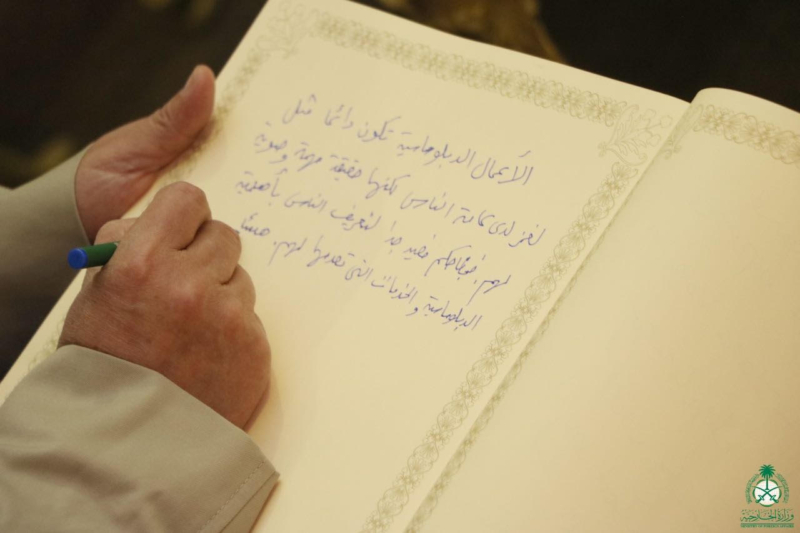 الأعمال الدبلوماسية تكون دائما مثل
لغز لدى عامة الناس لكنها حقيقة مهمة وضرورية
لهم. فيديو جدا لتعريف الناس بأهمية
الدبلوماسية والخدمات التي تقدمها لهم.
وزارة الخارجية